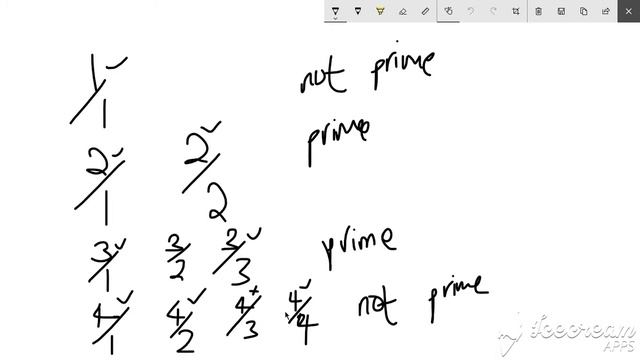 1/1 ✓ not prime
2/1 ✓ 2/2 ✓ prime
3/1 ✓ 3/2 3/3 ✓ prime
4/1 ✓ 4/2 ✓ 4/3 × 4/4 ✓ not prime
Icecream
APPS